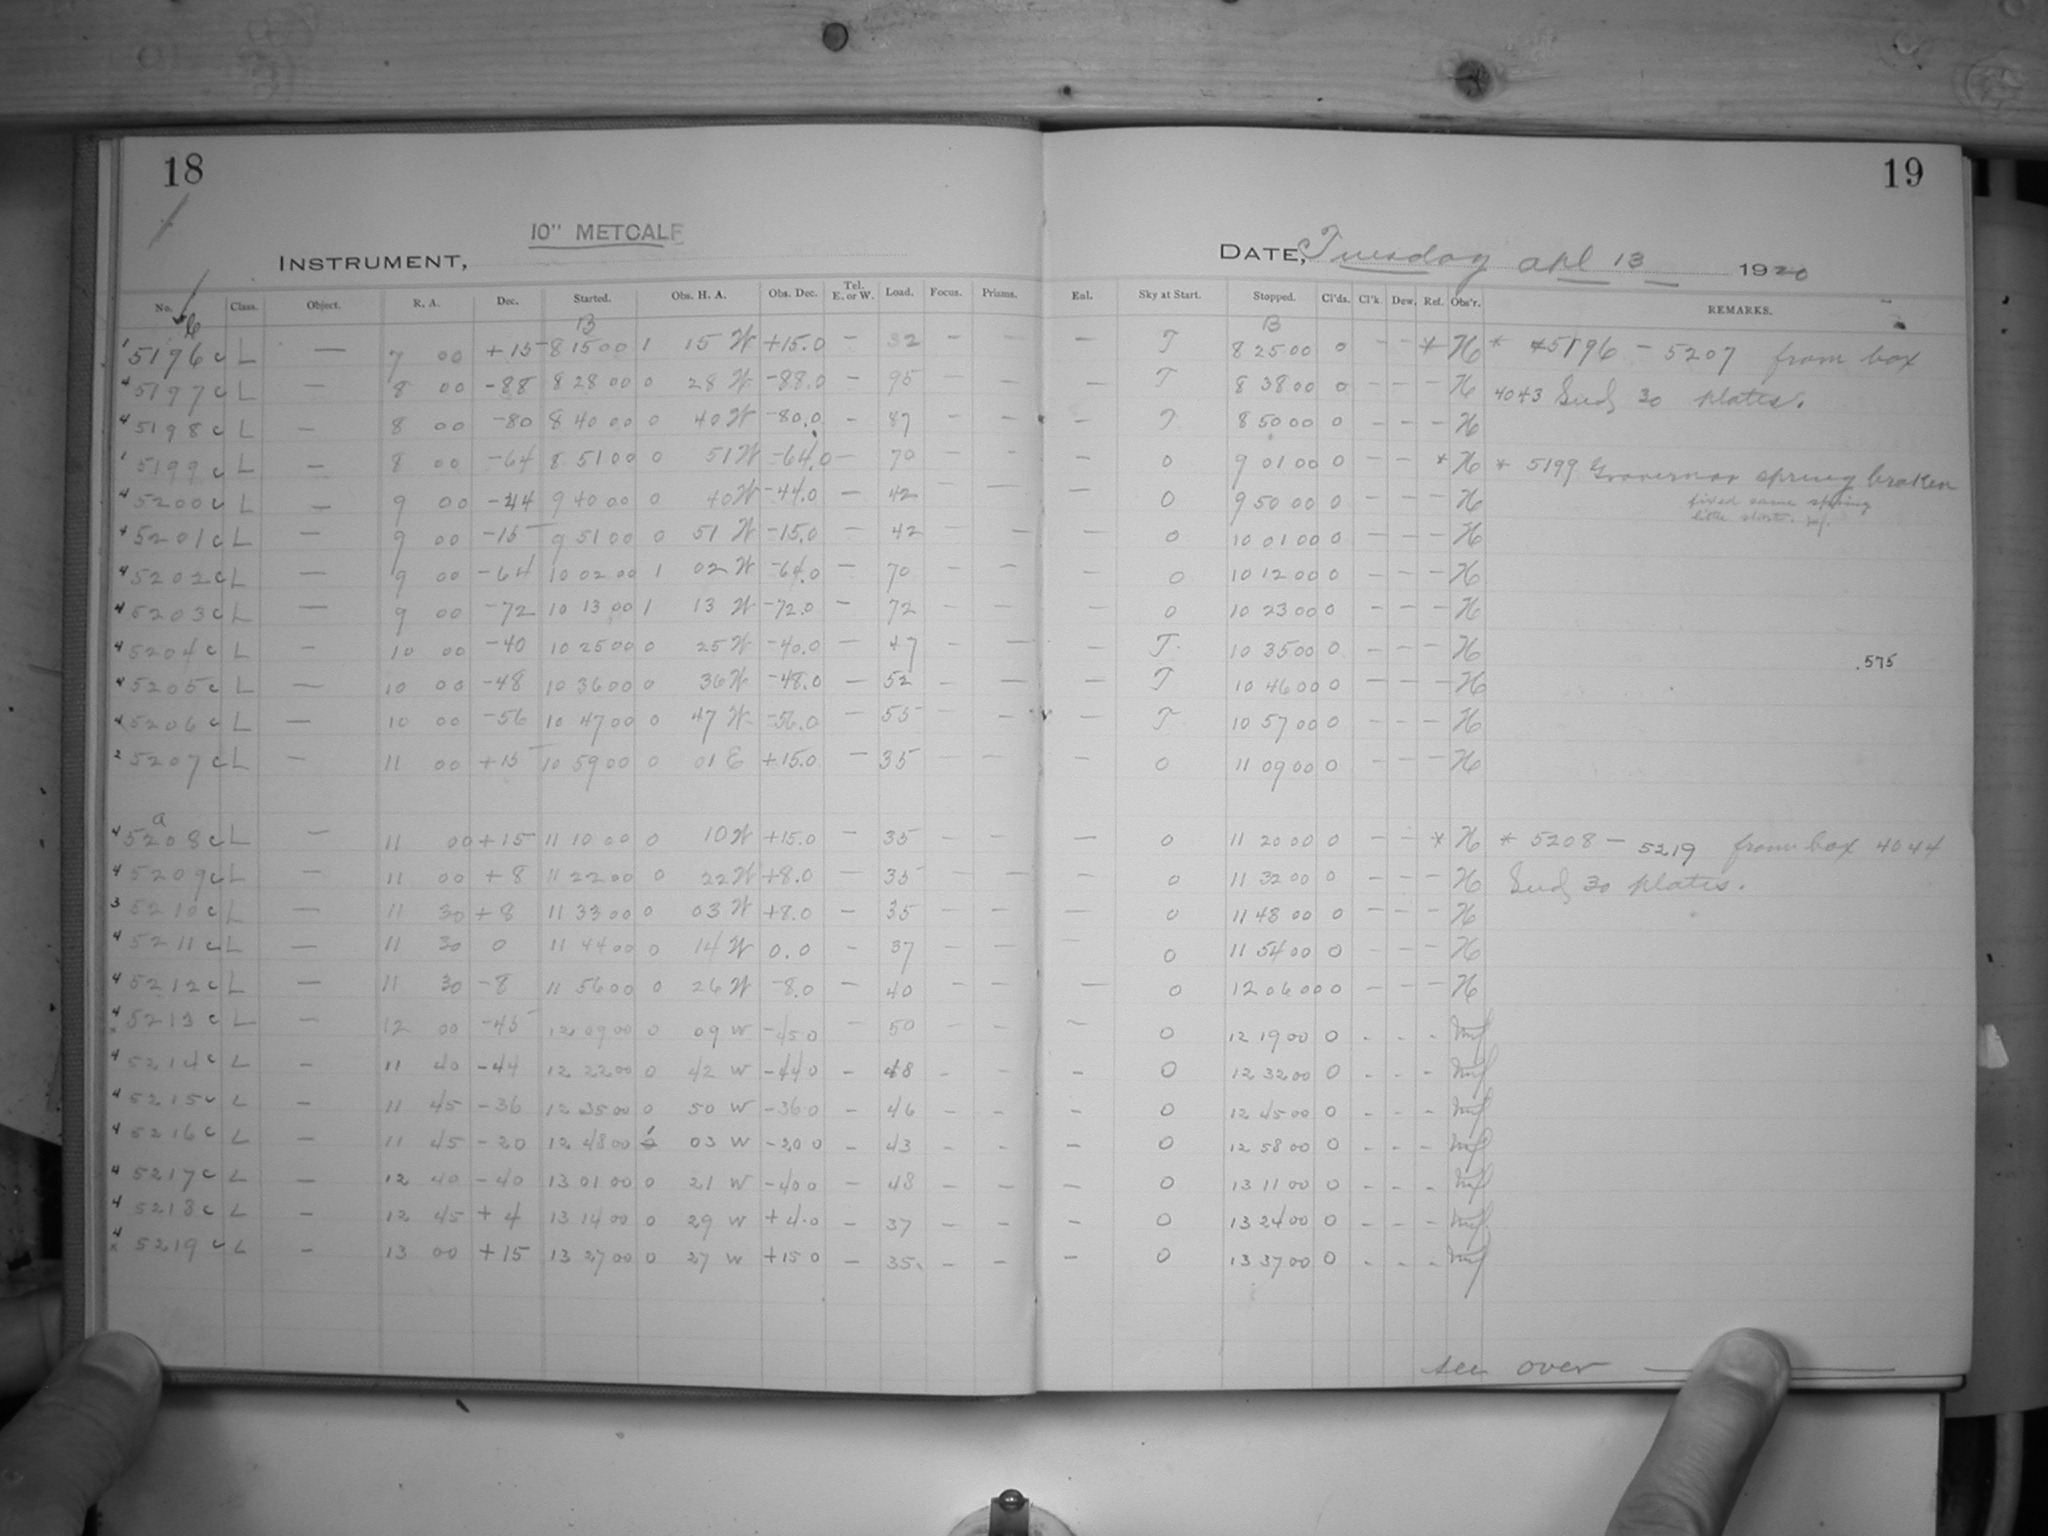 18
10" METCALF
INSTRUMENT,
No. Class. Object. R. A. Dec. Started. Obs. H. A. Obs. Dec. Tel. E. or W. Load. Focus. Prisms.
B
1 5196 c L — 7 00 +15 8 15 00 1 15 W +15.0 — 32 — —
4 5197 c L — 8 00 -88 8 28 00 0 28 W -88.0 — 95 — —
4 5198 c L — 8 00 -80 8 40 00 0 40 W -80.0 — 87 — —
1 5199 c L — 8 00 -64 8 51 00 0 51 W -64.0 — 70 — —
4 5200 c L — 9 00 -44 9 40 00 0 40 W -44.0 — 42 — —
4 5201 c L — 9 00 -15 9 51 00 0 51 W -15.0 42 —
4 5202 c L — 9 00 -64 10 02 00 1 02 W -64.0 — 70 — —
4 5203 c L — 9 00 -72 10 13 00 1 13 W -72.0 — 72 — —
4 5204 c L — 10 00 -40 10 25 00 0 25 W -40.0 — 47 — —
4 5205 c L — 10 00 -48 10 36 00 0 36 W -48.0 — 52 — —
4 5206 c L — 10 00 -56 10 47 00 0 47 W -56.0 — 55 — —
2 5207 c L — 11 00 +15 10 59 00 0 01 E +15.0 — 35 — —
a
4 5208 c L — 11 00 +15 11 10 00 0 10 W +15.0 — 35 — —
4 5209 c L — 11 00 +8 11 22 00 0 22 W +8.0 — 35 — —
3 5210 c L — 11 30 +8 11 33 00 0 03 W +8.0 — 35 — —
4 5211 c L — 11 30 0 11 44 00 0 14 W 0.0 — 37 — —
4 5212 c L — 11 30 -8 11 56 00 0 26 W -8.0 — 40 — —
4 x 5213 c L — 12 00 -45 12 09 00 0 09 W -45 0 — 50 — —
4 5214 c L — 11 40 -44 12 22 00 0 42 W -44 0 — 48 — —
4 5215 c L — 11 45 -36 12 35 00 0 50 W -36 0 — 46 — —
4 5216 c L — 11 45 -20 12 48 00 1 03 W -20 0 — 43 — —
4 5217 c L — 12 40 -40 13 01 00 0 21 W -40 0 — 48 — —
4 5218 c L — 12 45 +4 13 14 00 0 29 W +4.0 — 37 — —
4 x 5219 c L — 13 00 +15 13 27 00 0 27 W +15 0 — 35. — —
19
DATE, Tuesday Apl 13 1920
Enl. Sky at Start. Stopped. Cl'ds. Cl'k. Dew. Ref. Obs'r. REMARKS.
B
— T 8 25 00 0 — — * H * *5196 — 5207 from box
— T 8 38 00 0 — — — H 4043 30 plates.
— T 8 50 00 0 — — — H
0 9 01 00 0 — — * H * 5199 Governor spring broken
— 0 9 50 00 0 — — — H fixed same spring
little shorter.
— 0 10 01 00 0 — — — H
— 0 10 12 00 0 — — — H
— 0 10 23 00 0 — — — H
— T. 10 35 00 0 — — — H
.575
— T 10 46 00 0 — — — H
— T 10 57 00 0 — — — H
— 0 11 09 00 0 — — — H
— 0 11 20 00 0 — — * H * 5208 — 5219 from box 4044
— 0 11 32 00 0 — — — H 30 plates.
— 0 11 48 00 0 — — — H
0 11 54 00 0 — — — H
— 0 12 06 00 0 — — — H
— 0 12 19 00 0 - - -
— 0 12 32 00 0 - - -
— 0 12 45 00 0 - - -
— 0 12 58 00 0 - - -
— 0 13 11 00 0 - - -
— 0 13 24 00 0 - - -
— 0 13 37 00 0 - - -
see over